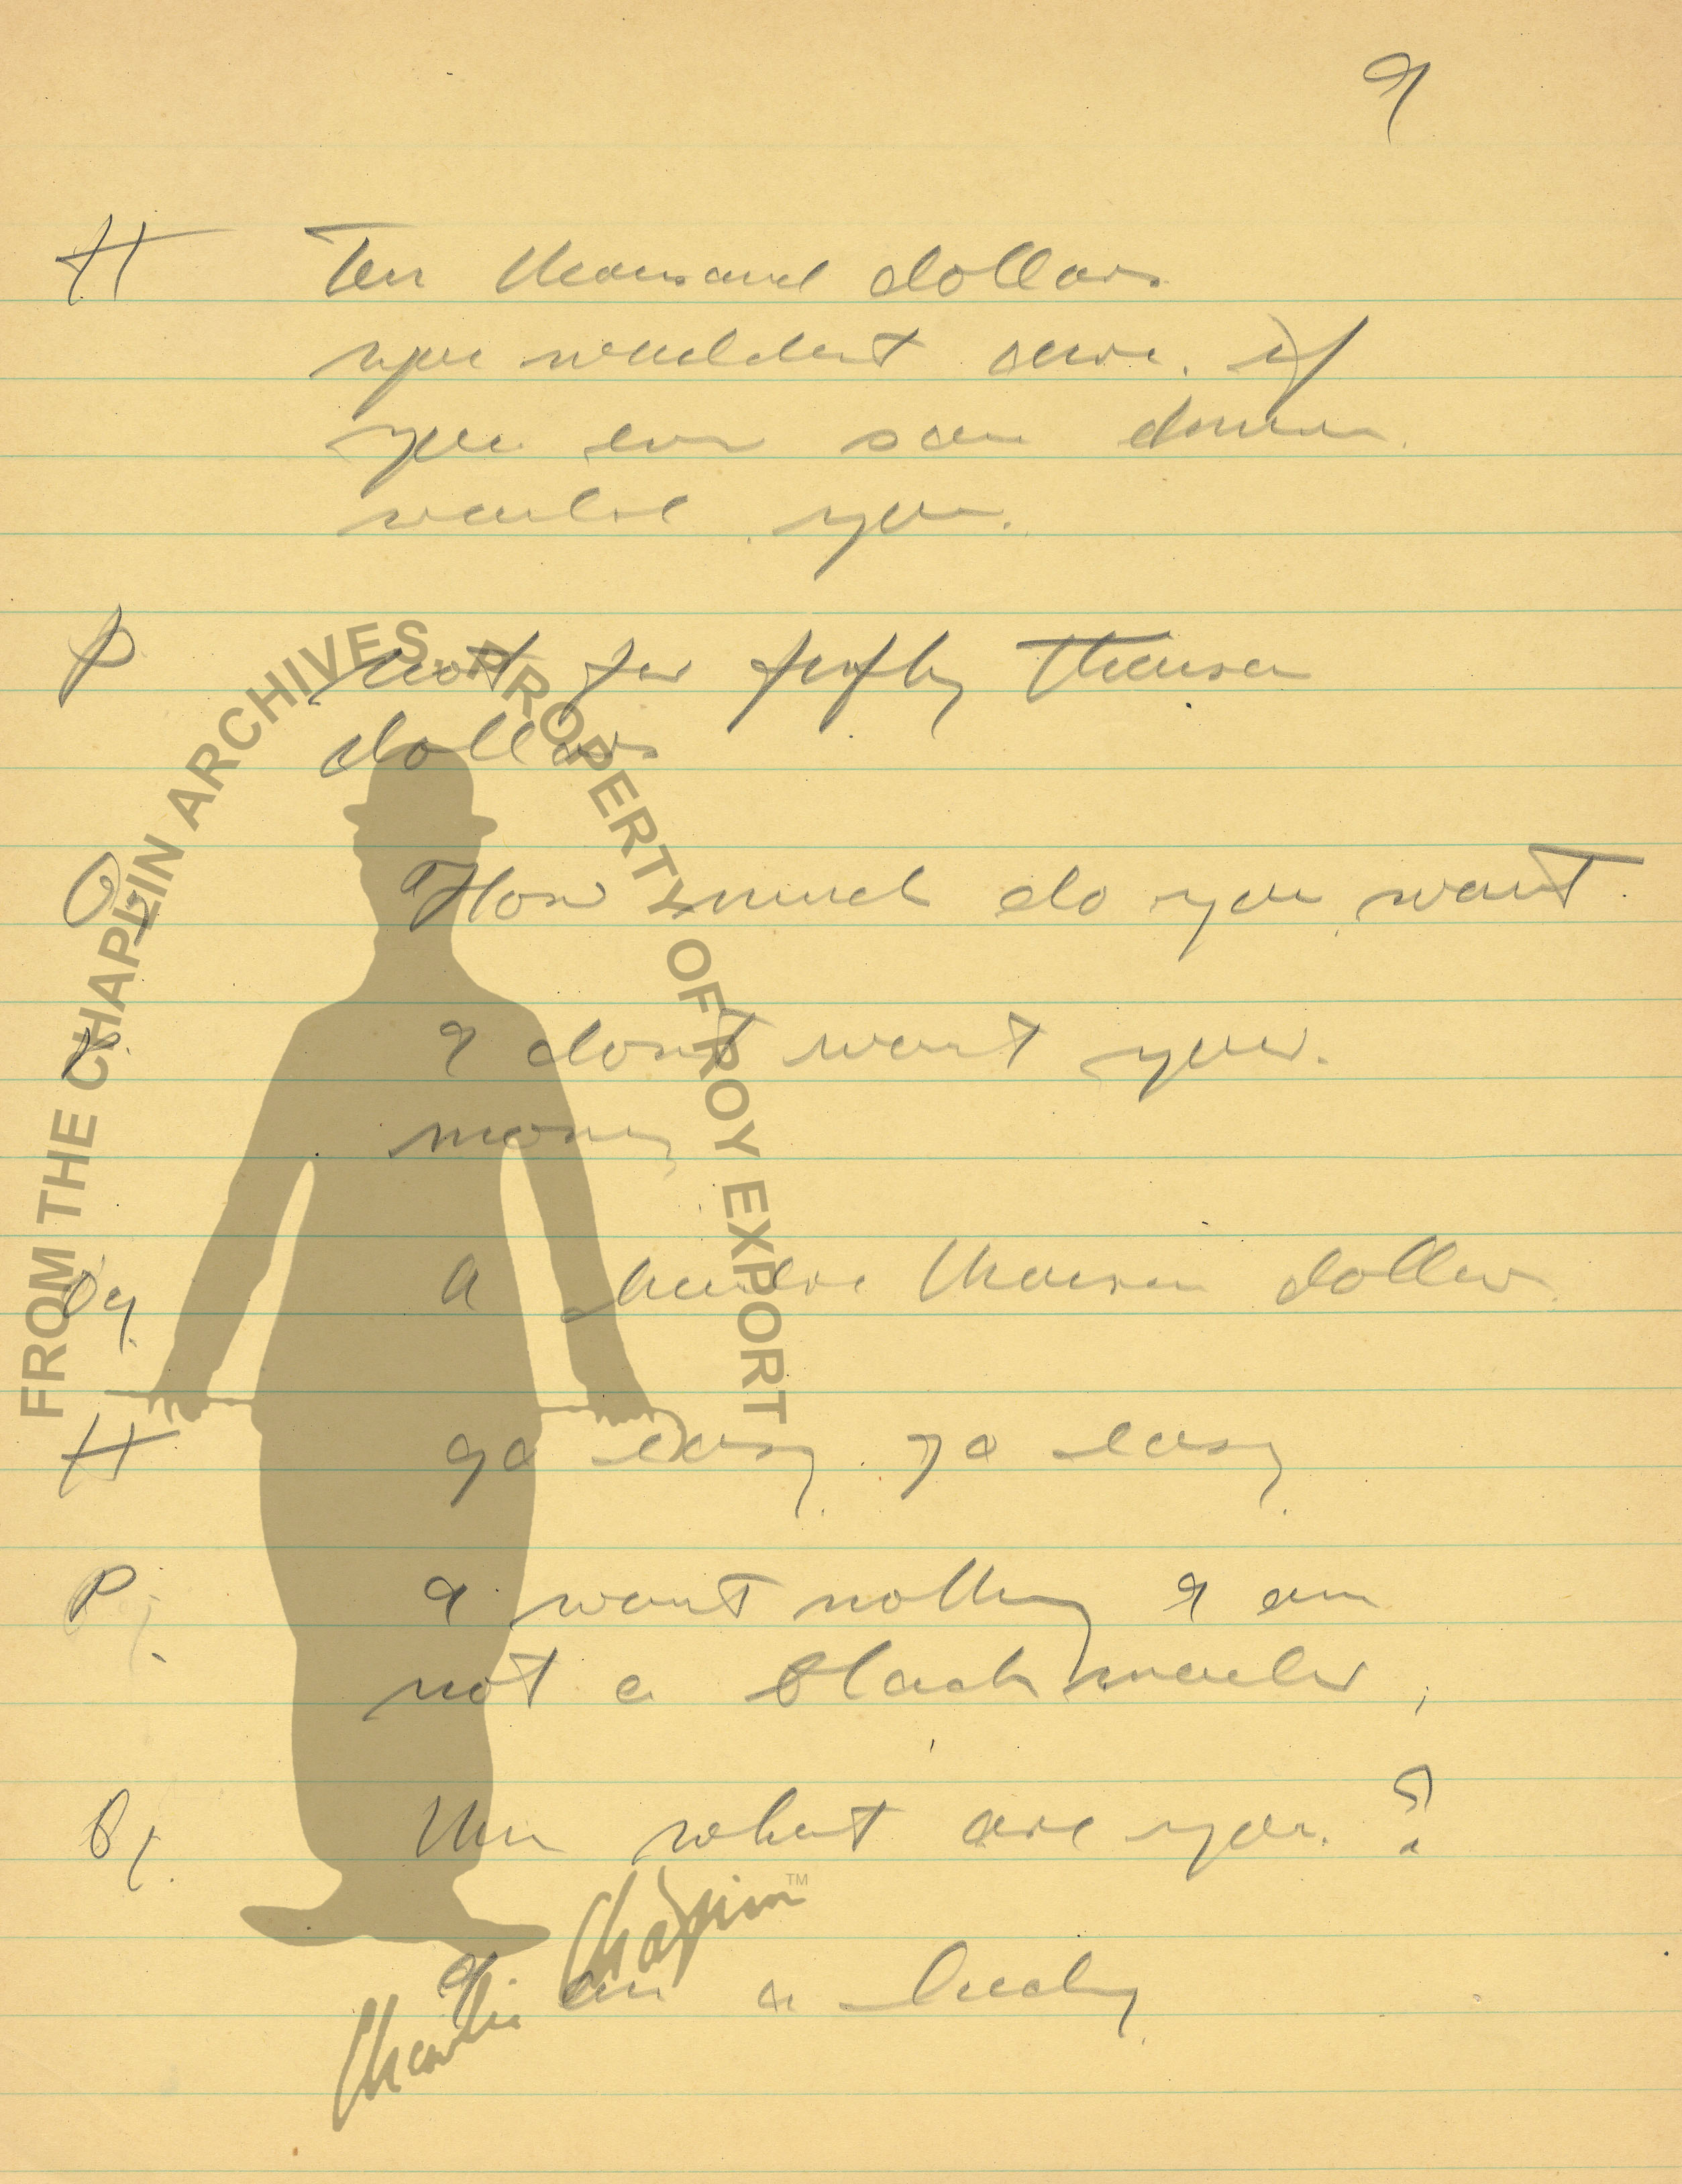 9
H Ten thousand dollars
you wouldent if
you ever saw
would you.
P not for fifty thousan
dollars
O How much do you want.
P. I dont want your.
money
Oy. A hundre thousan dollars.
H go easy. go easy.
P. I want nothing I am
not a blackmailer,
Oy. Then what are you.?
I am a lady
FROM THE CHAPLIN ARCHIVES. PROPERTY OF ROY EXPORT
Charlie Chaplin™